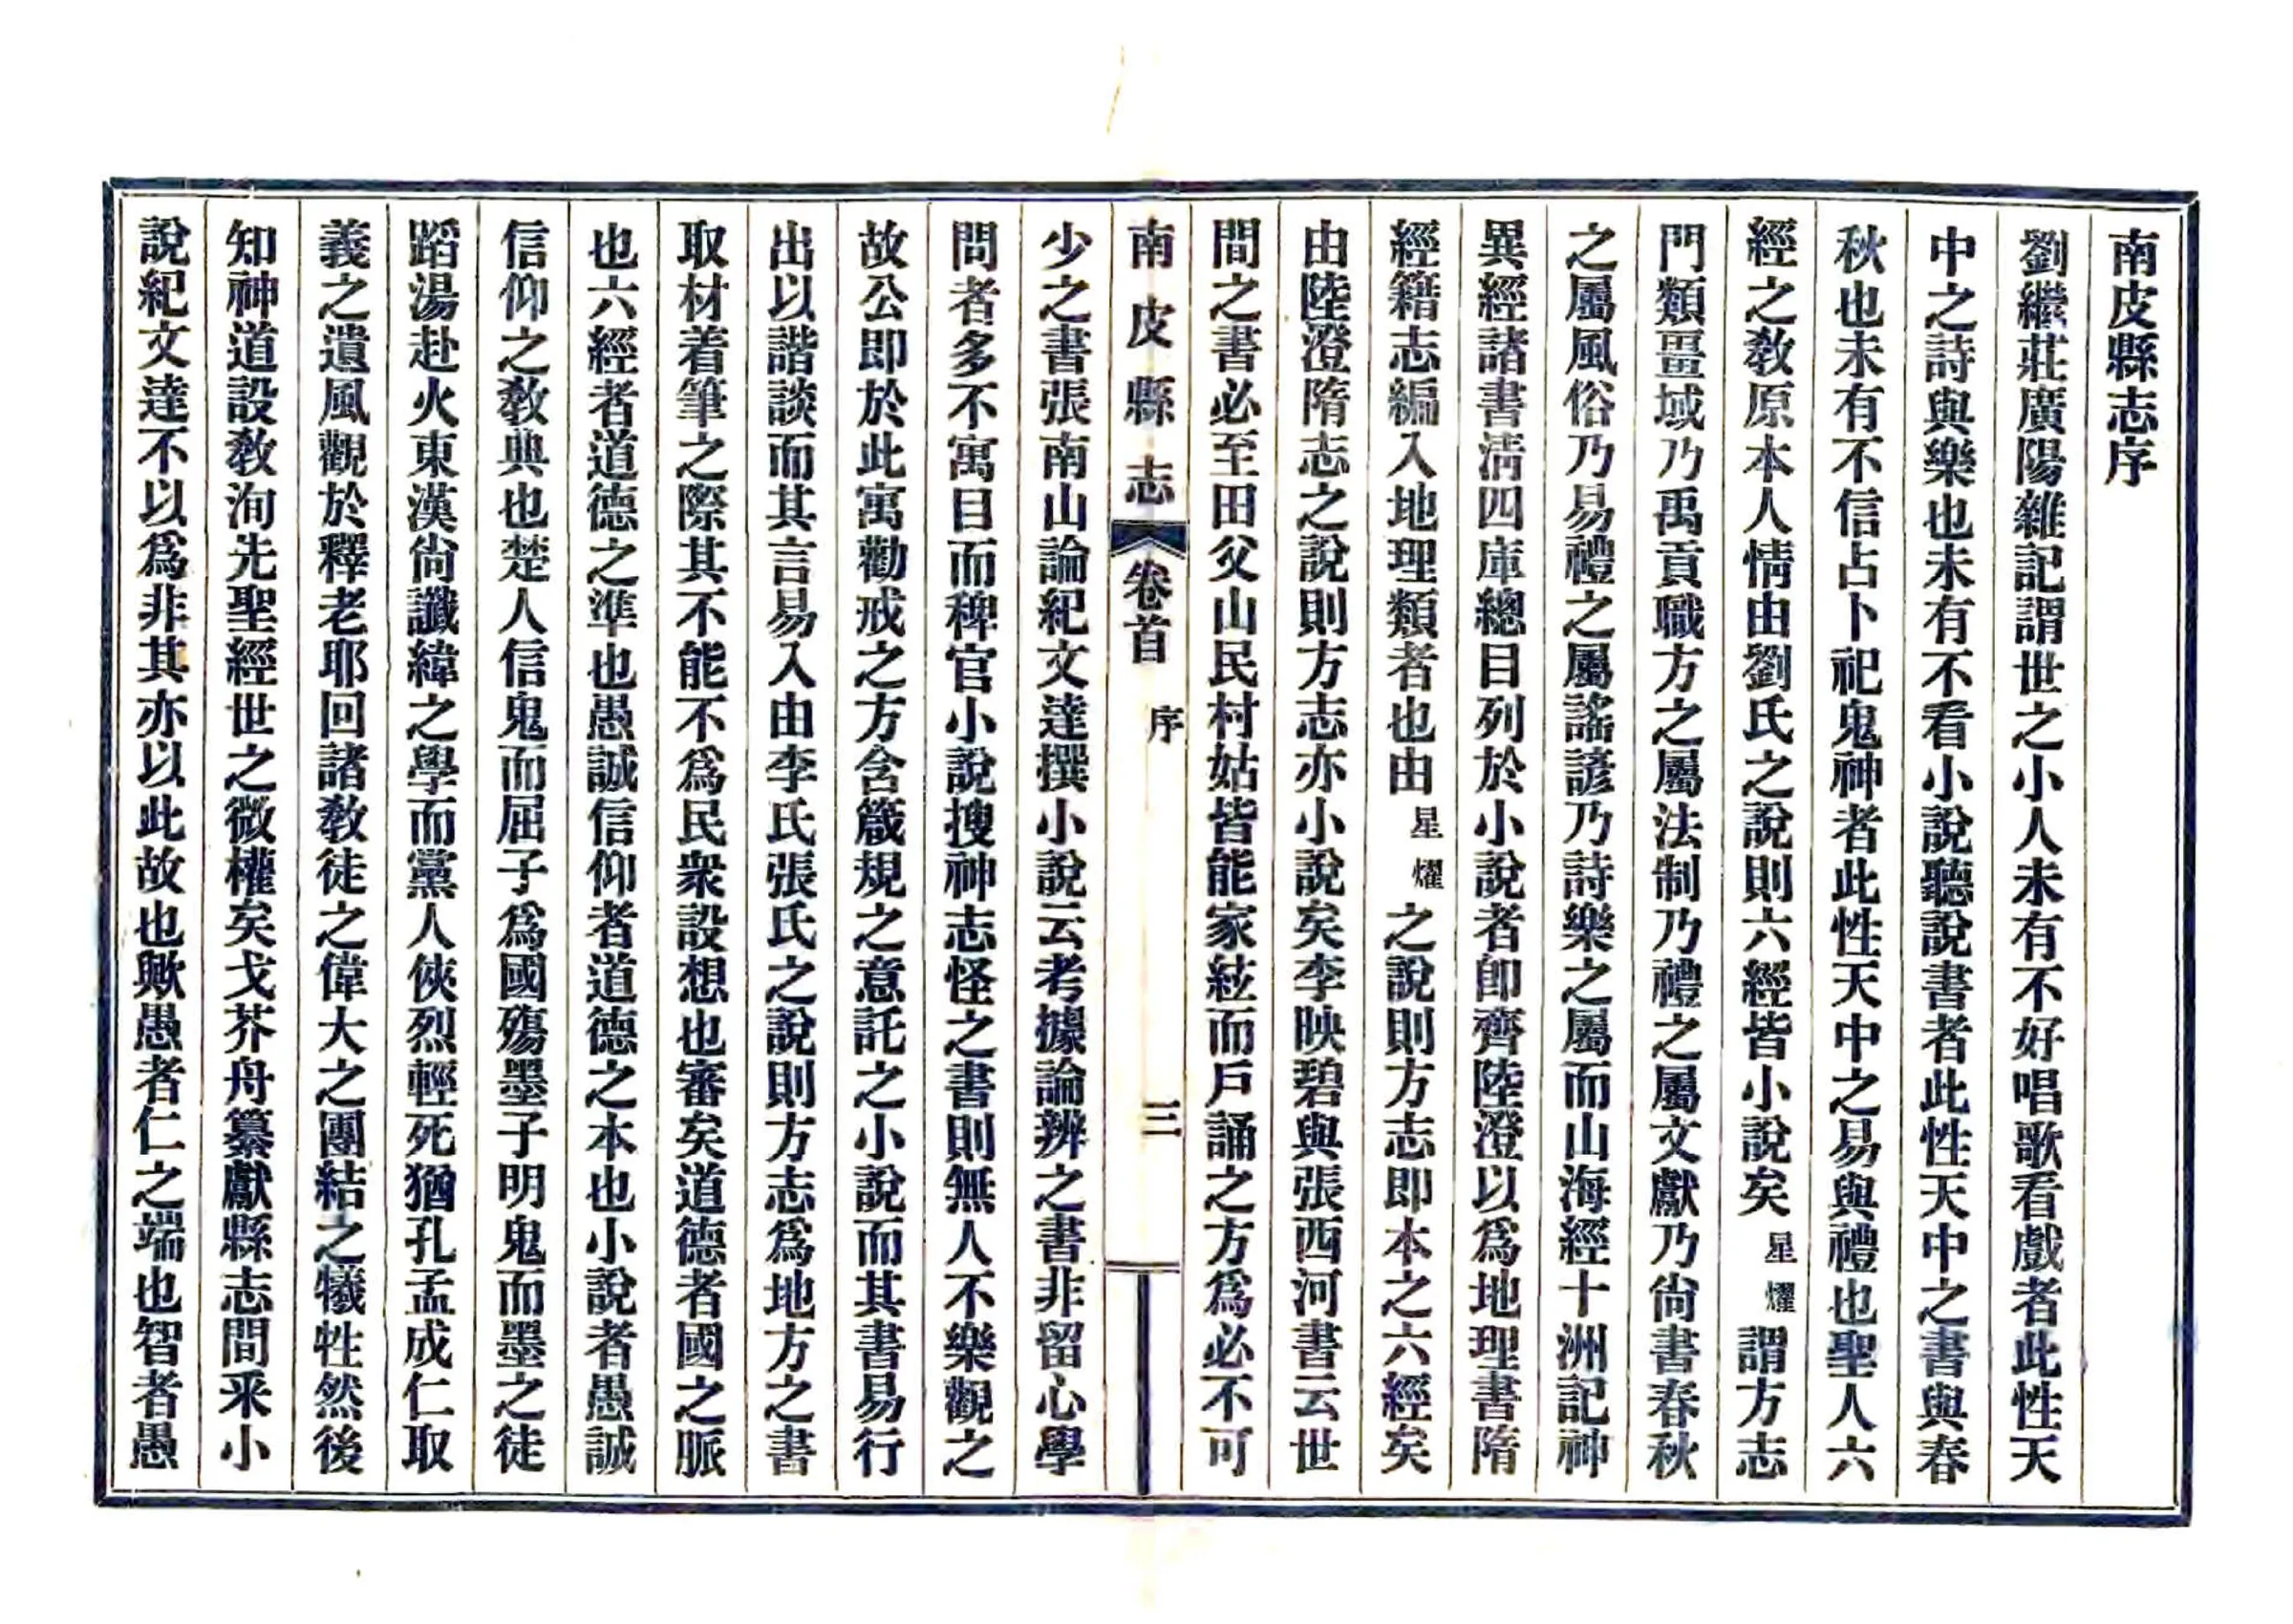 南皮縣志序
劉繼莊廣陽雜記謂世之小人未有不好唱歌看戲者此性天
中之詩與樂也未有不看小說聽說書者此性天中之書與春
秋也未有不信占卜祀鬼神者此性天中之易與禮也聖人六
經之敎原本人情由劉氏之說則六經皆小說矣星燿謂方志
門類畺域乃禹貢職方之屬法制乃禮之屬文獻乃尙書春秋
之屬風俗乃易禮之屬謠諺乃詩樂之屬而山海經十洲記神
異經諸書淸四庫總目列於小說者卽齊陸澄以爲地理書隋
經籍志編入地理類者也由星燿之說則方志即本之六經矣
由陸澄隋志之說則方志亦小說矣李映碧與張西河書云世
間之書必至田父山民村姑皆能家絃而戶誦之方爲必不可
南皮縣志 卷首 序 三
少之書張南山論紀文達撰小說云考據論辨之書非留心學
問者多不寓目而稗官小說搜神志怪之書則無人不樂觀之
故公即於此寓勸戒之方含箴規之意託之小說而其書易行
出以諧談而其言易入由李氏張氏之說則方志爲地方之書
取材着筆之際其不能不爲民衆設想也審矣道德者國之脈
也六經者道德之準也愚誠信仰者道德之本也小說者愚誠
信仰之敎典也楚人信鬼而屈子爲國殤墨子明鬼而墨之徒
蹈湯赴火東漢尙讖緯之學而黨人俠烈輕死猶孔孟成仁取
義之遺風觀於釋老耶回諸敎徒之偉大之團結之犧牲然後
知神道設敎洵先聖經世之微權矣戈芥舟纂獻縣志間采小
說紀文達不以爲非其亦以此故也歟愚者仁之端也智者愚